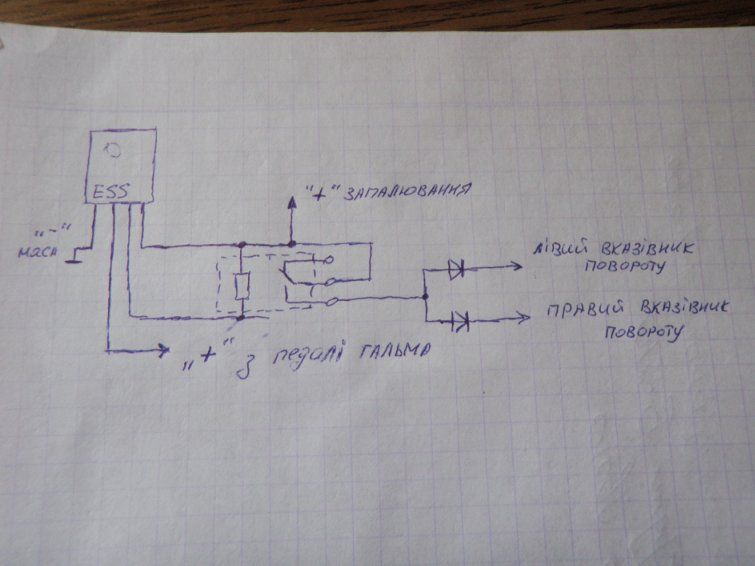 ESS
"-"
маса
"+" ЗАПАЛЮВАННЯ
ЛІВИЙ ВКАЗІВНИК
ПОВОРОТУ
ПРАВИЙ ВКАЗІВНИК
ПОВОРОТУ
"+" З ПЕДАЛІ ГАЛЬМА